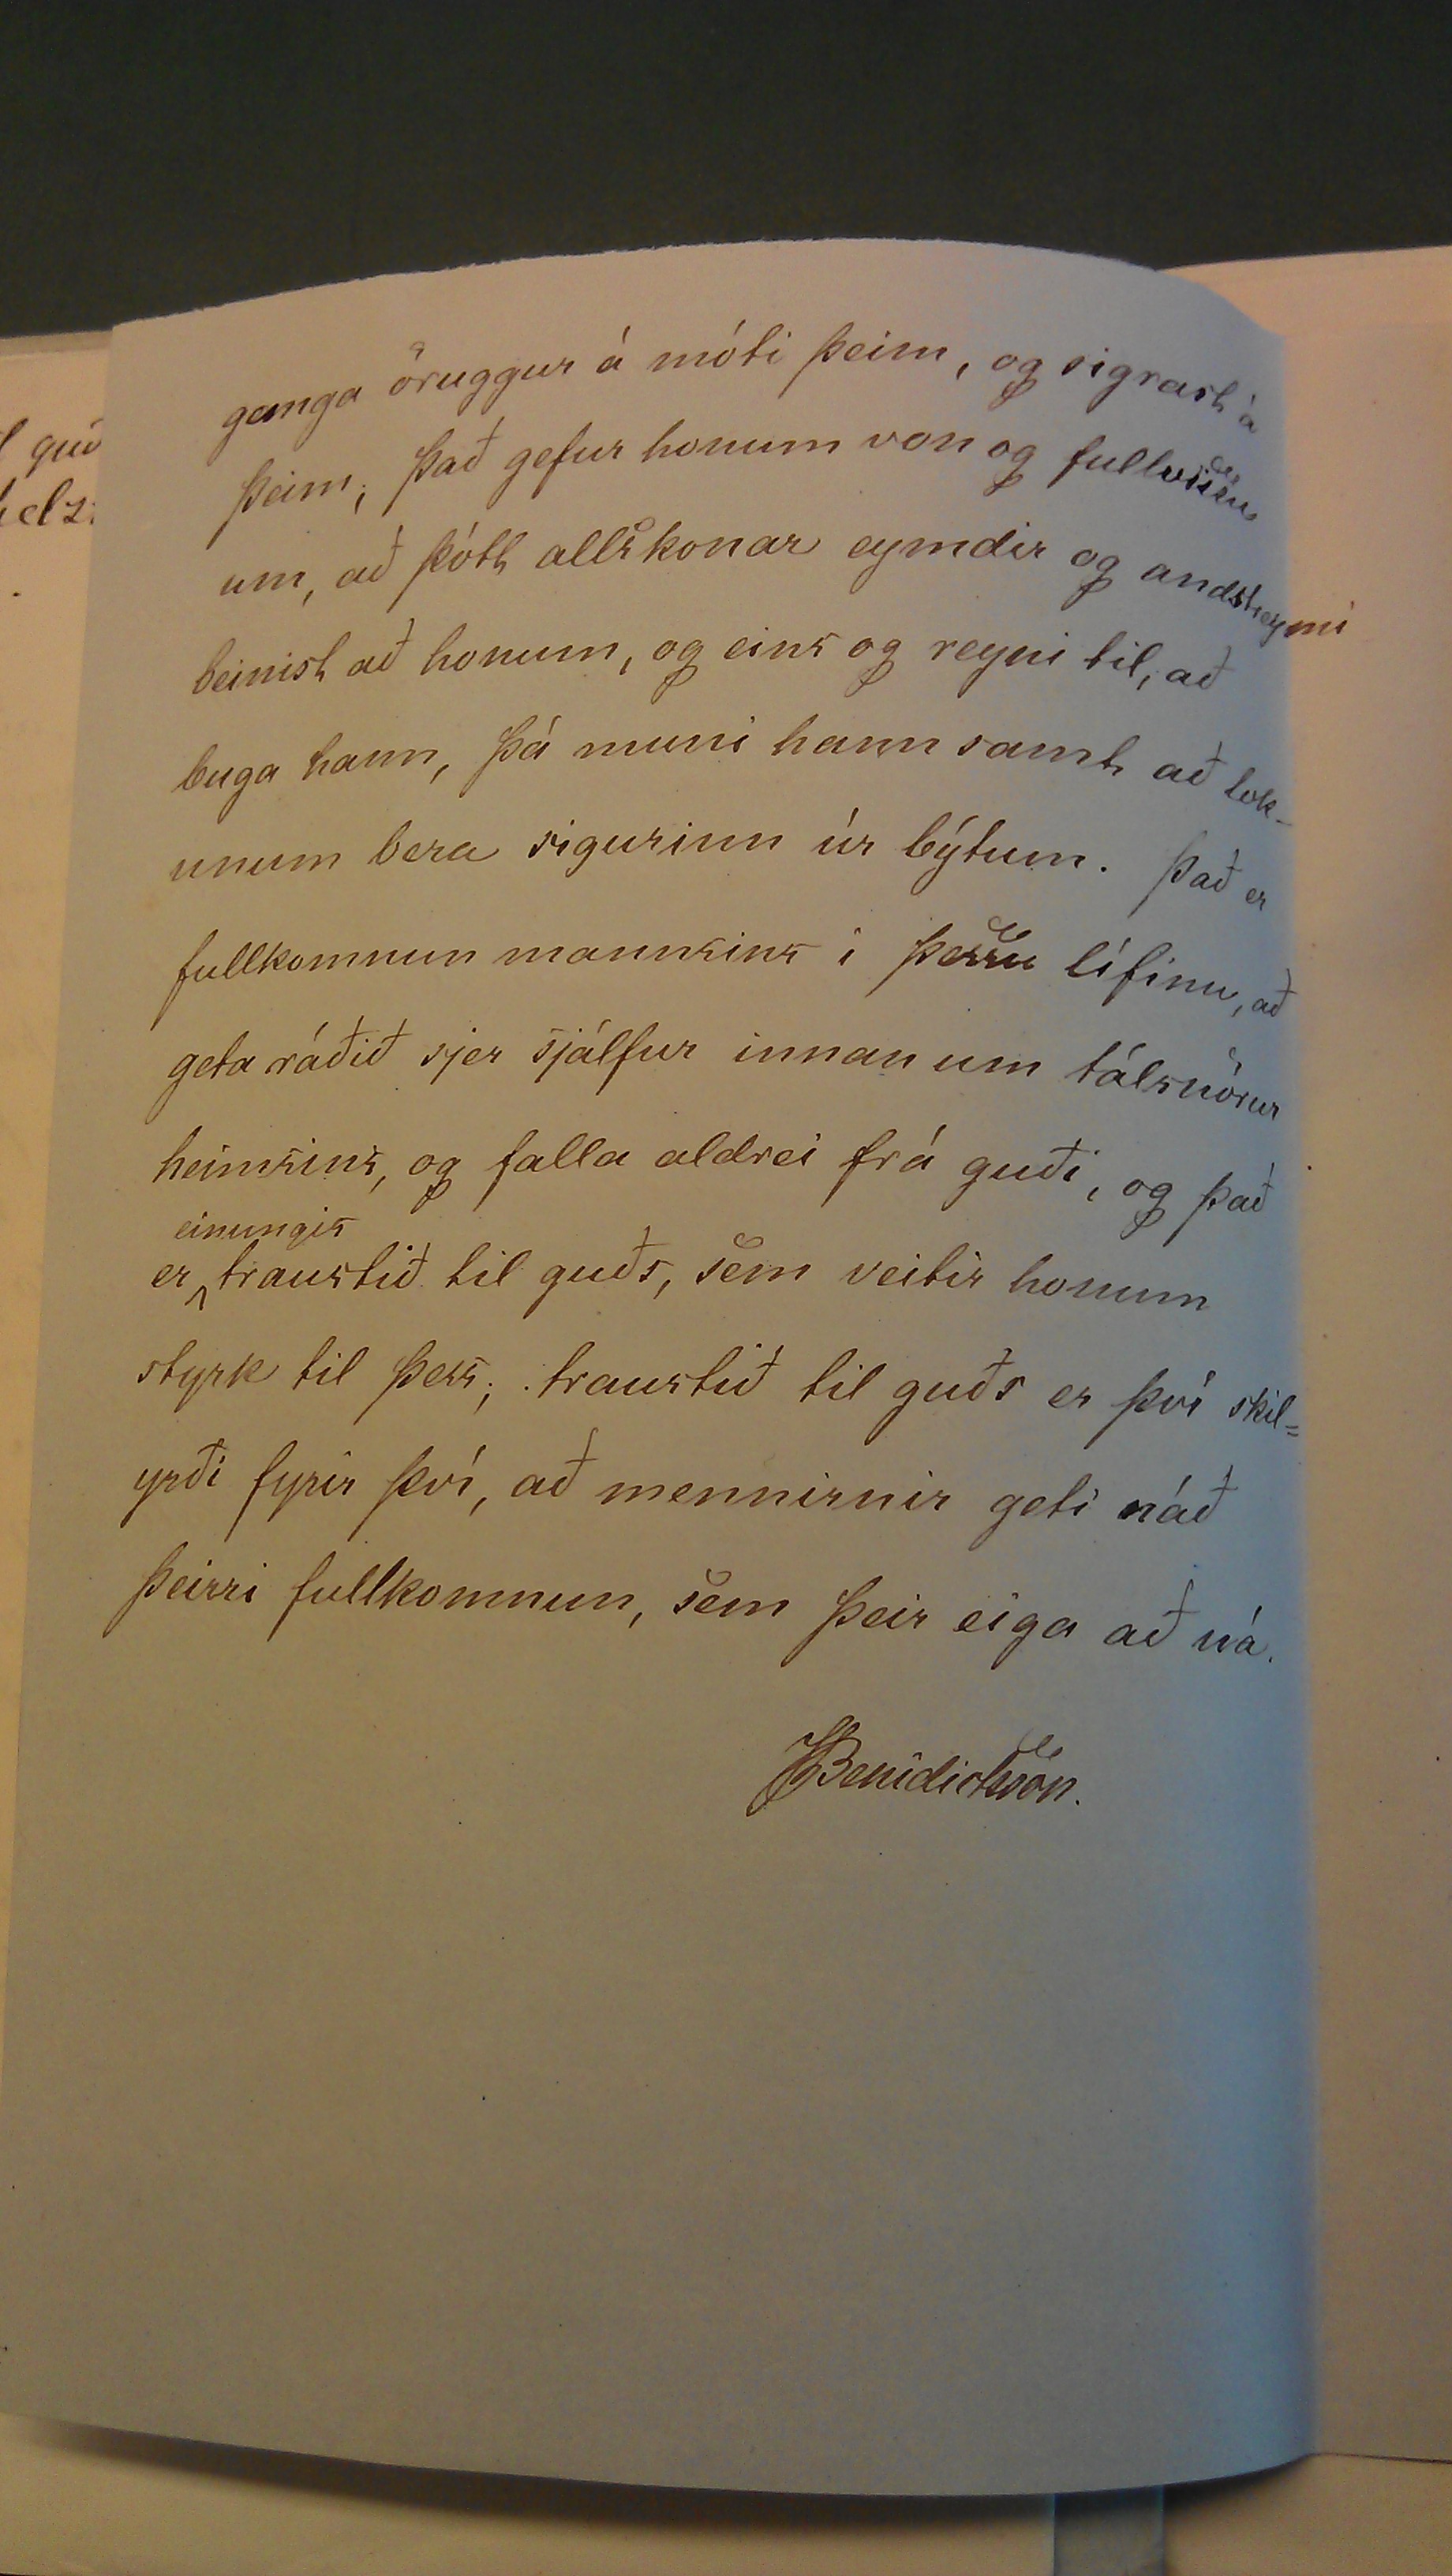 ganga öruggur á móti þeim, og sigrast á
þeim; það gefur honum von og fullvissu
um, að þótt allskonar eymdir og andstreymi
beinist að honum, og eins og reyni til, að
buga hann, þá muni hann samt að lok-
unum bera sigurinn úr býtum. Það er
fullkomnun mannsins í þessu lífinu, að
geta ráðið sjer sjálfur innan um tálsnörur
heimsins, og falla aldrei frá guði, og það
einungis
er traustið til guðs, sem veitir honum
styrk til þess; traustið til guðs er því skil=
yrði fyrir því, að mennirnir geti náð
þeirri fullkomnun, sem þeir eiga að ná.
HBenidictsson.